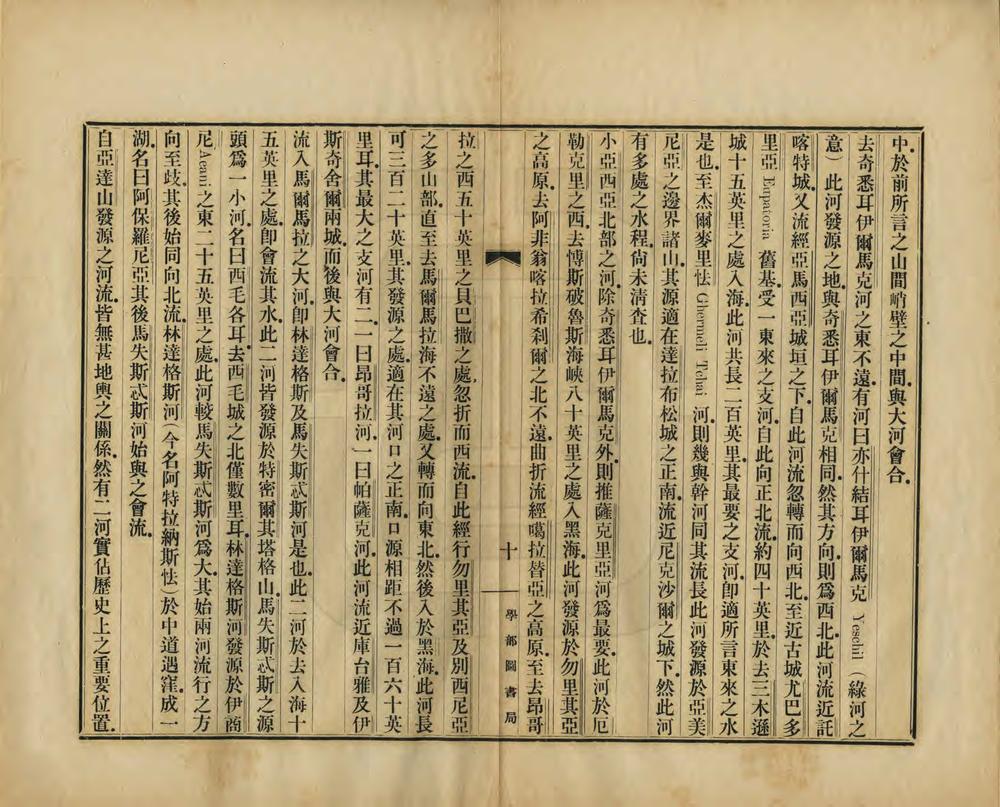 中於前所言之山間峭壁之中間與大河會合
去奇悉耳伊爾馬克河之東不遠有河曰亦什結耳伊爾馬克 Yeschil（綠河之
意）此河發源之地與奇悉耳伊爾馬克相同然其方向則爲西北此河流近託
喀特城又流經亞馬西亞城垣之下自此河流忽轉而向西北至近古城尤巴多
里亞 Eupatoria 舊基受一東來之支河自此向正北流約四十英里於去三木遜
城十五英里之處入海此河共長二百英里其最要之支河即適所言東來之水
是也至杰爾麥里怯 Ghermeli Tchai 河則幾與幹河同其流長此河發源於亞美
尼亞之邊界諸山其源適在達拉布松城之正南流近尼克沙爾之城下然此河
有多處之水程尙未清查也
小亞西亞北部之河除奇悉耳伊爾馬克外則推薩克里亞河爲最要此河於厄
勒克里之西去博斯破魯斯海峽八十英里之處入黑海此河發源於勿里其亞
之高原去阿非翁喀拉希剎爾之北不遠曲折流經噶拉替亞之高原至去昂哥
十
學部圖書局
拉之西五十英里之貝巴撒之處忽折而西流自此經行勿里其亞及別西尼亞
之多山部直至去馬爾馬拉海不遠之處又轉而向東北然後入於黑海此河長
可三百二十英里其發源之處適在其河口之正南口源相距不過一百六十英
里耳其最大之支河有二一曰昂哥拉河一曰帕薩克河此河流近庫台雅及伊
斯奇舍爾兩城而後與大河會合
流入馬爾馬拉之大河即林達格斯及馬失斯忒斯河是也此二河於去入海十
五英里之處即會流其水此二河皆發源於特密爾其塔格山馬失斯忒斯之源
頭爲一小河名曰西毛各耳去西毛城之北僅數里耳林達格斯河發源於伊商
尼 Aeani 之東二十五英里之處此河較馬失斯忒斯河爲大其始兩河流行之方
向至歧其後始同向北流林達格斯河（今名阿特拉納斯怯）於中道遇窪成一
湖名曰阿保羅尼亞其後馬失斯忒斯河始與之會流
自亞達山發源之河流皆無甚地輿之關係然有二河實佔歷史上之重要位置